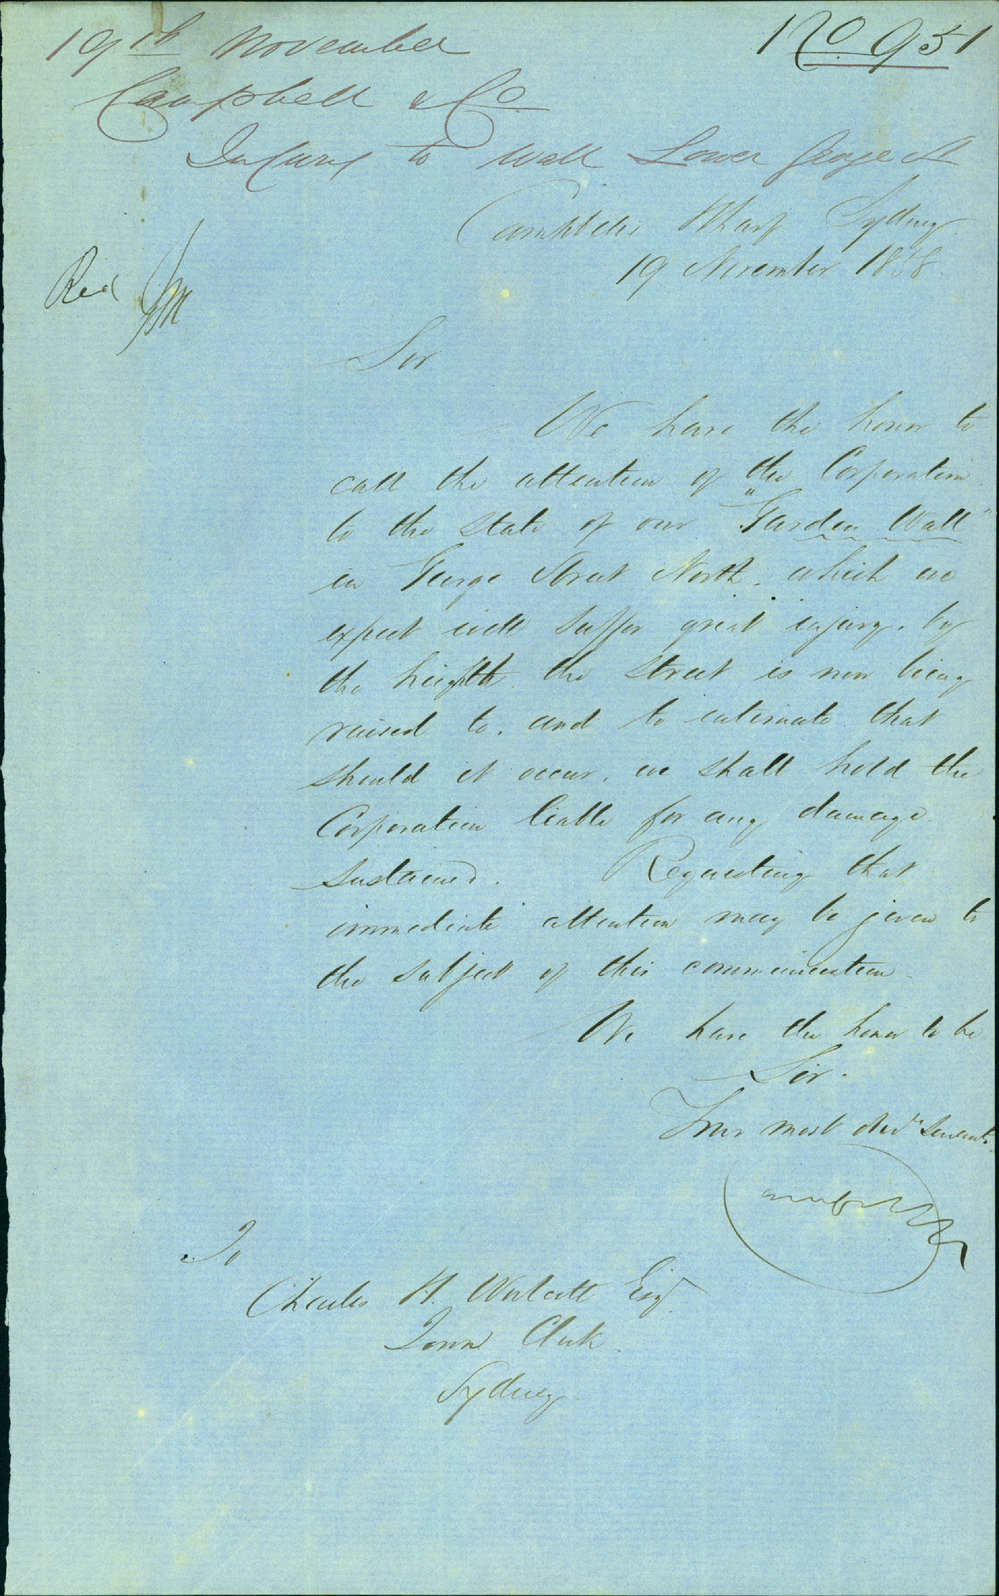 19th November
No 951
Campbell & Co
Injury to Wall Lower George St
Campbells Wharf Sydney
19 November 1858
Recd
Sir
We have the honor to
call the attention of the Corporation
to the state of our "Garden Wall"
in George Street North, which we
expect will suffer great injury, by
the heighth the street is now being
raised to, and to intimate that
should it occur, we shall hold the
Corporation liable for any damage
sustained. Requesting that
immediate attention may be given to
the subject of this communication
We have the honor to be
Sir.
Your most obdt Servants
Campbell & Co
To
Charles H. Woolcott Esqr
Town Clerk
Sydney